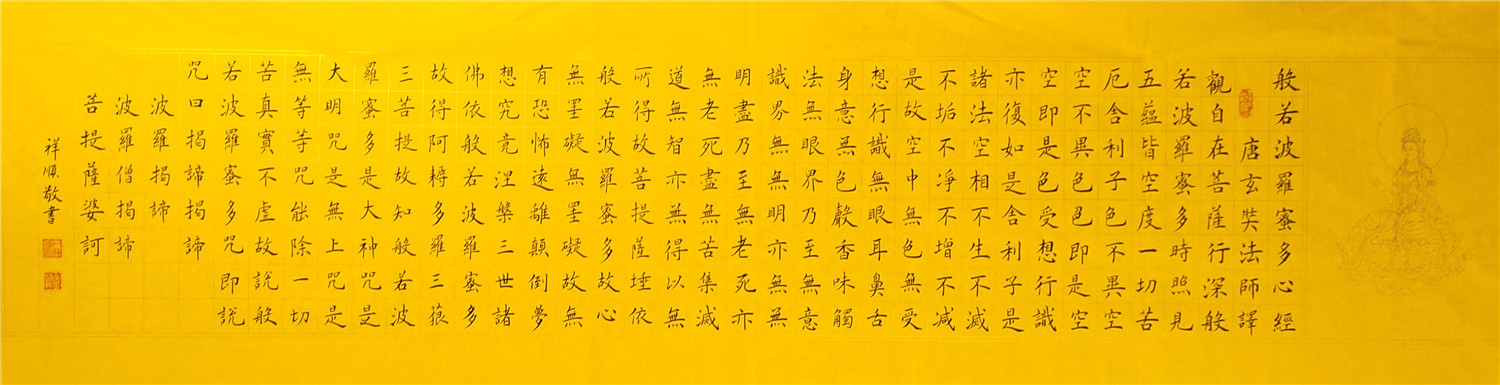 般若波羅蜜多心經
唐玄奘法師譯
觀自在菩薩行深般
若波羅蜜多時照見
五蘊皆空度一切苦
厄舍利子色不異空
空不異色色即是空
空即是色受想行識
亦復如是舍利子是
諸法空相不生不滅
不垢不淨不增不減
是故空中無色無受
想行識無眼耳鼻舌
身意無色聲香味觸
法無眼界乃至無意
識界無無明亦無無
明盡乃至無老死亦
無老死盡無苦集滅
道無智亦無得以無
所得故菩提薩埵依
般若波羅蜜多故心
無罣礙無罣礙故無
有恐怖遠離顛倒夢
想究竟涅槃三世諸
佛依般若波羅蜜多
故得阿耨多羅三藐
三菩提故知般若波
羅蜜多是大神咒是
大明咒是無上咒是
無等等咒能除一切
苦真實不虛故說般
若波羅蜜多咒即說
咒曰揭諦揭諦
波羅揭諦
波羅僧揭諦
菩提薩婆訶
祥順敬書